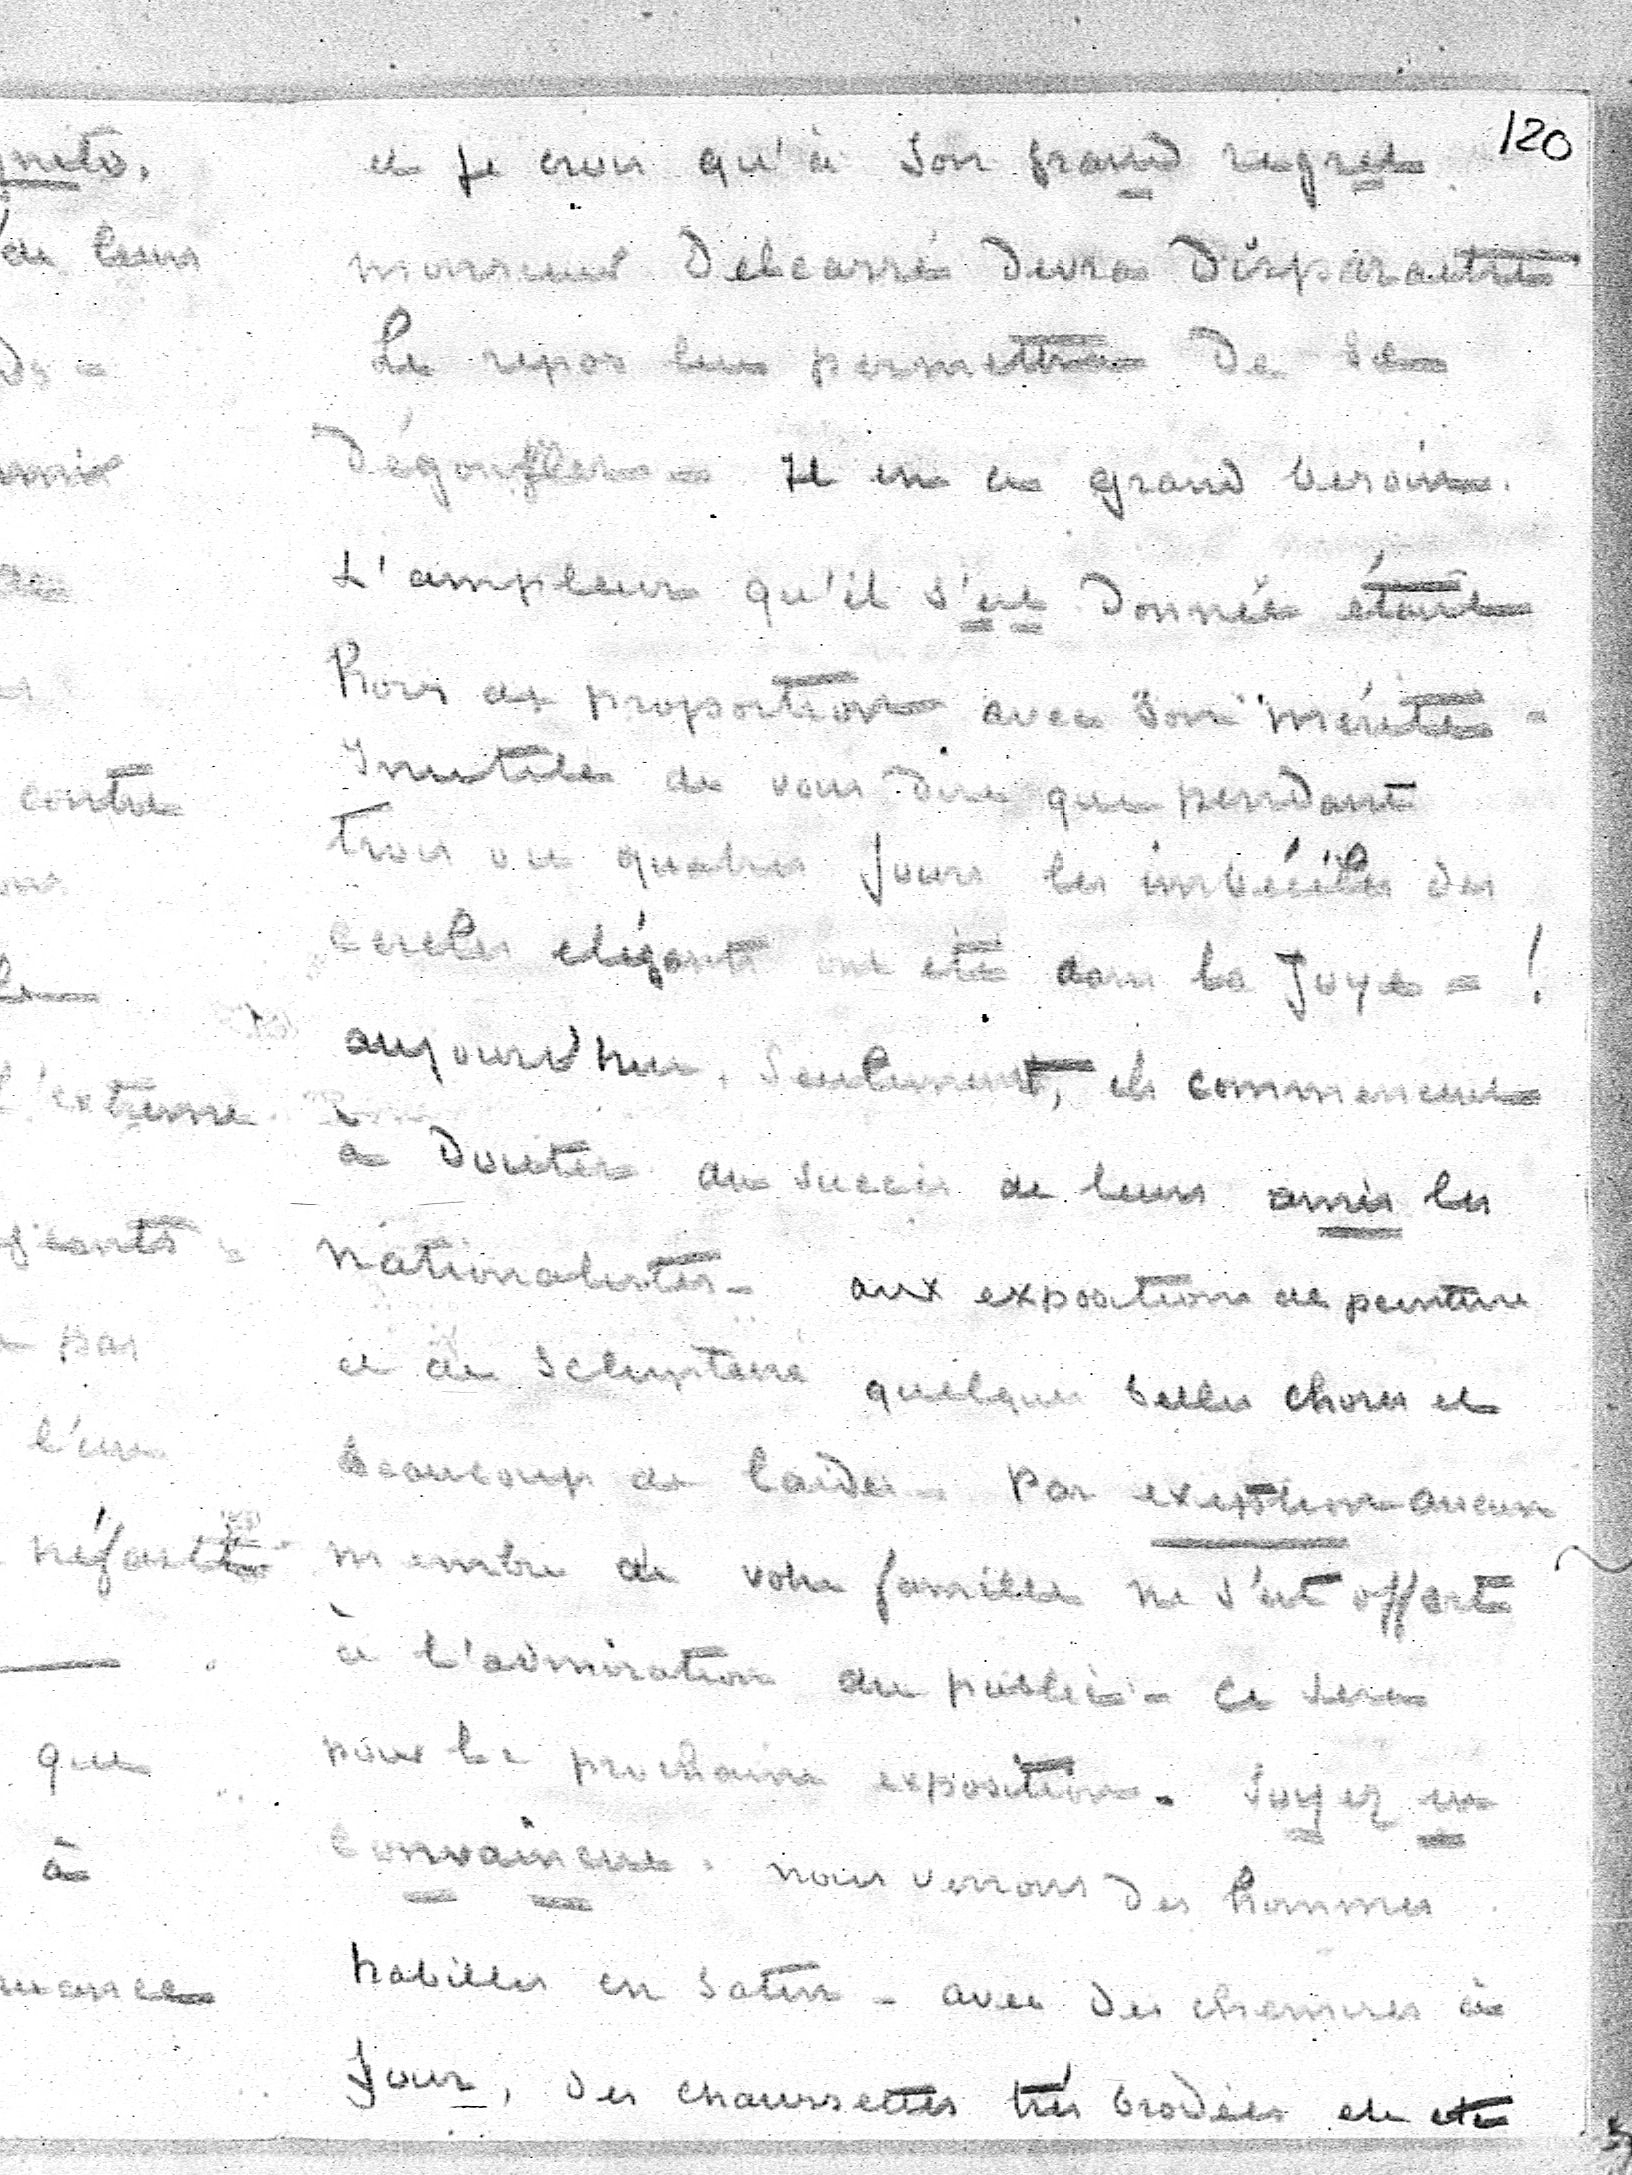 120
et je crois qu'à son grand regret
monsieur Delcassé devra disparaitre
Le repos leur permettra de se
dégonfler - Il en a grand besoin.
L'ampleur qu'il s'est donnée était
hors de proportion avec son mérite -
Inutile de vous dire que pendant
trois ou quatre jours les imbéciles des
cercles elégants ont été dans la Joye - !
aujourd'hui, seulement, ils commencent
à douter du succès de leurs amis les
nationalistes - aux expositions de peinture
et de sclupture quelques belles choses et
beaucoup de laides - Par exeption aucun
membre de votre famille ne s'est offert
à l'admiration du public - Ce sera
pour la prochaine exposition. Soyez en
convaincue. nous verrons des hommes
habilles en satin - avec des chemises à
Jour, des chaussettes très brodées et etc
gnito,
de leurs
contre
l'extreme
geants
pas
l'eur
néfaste
que
à